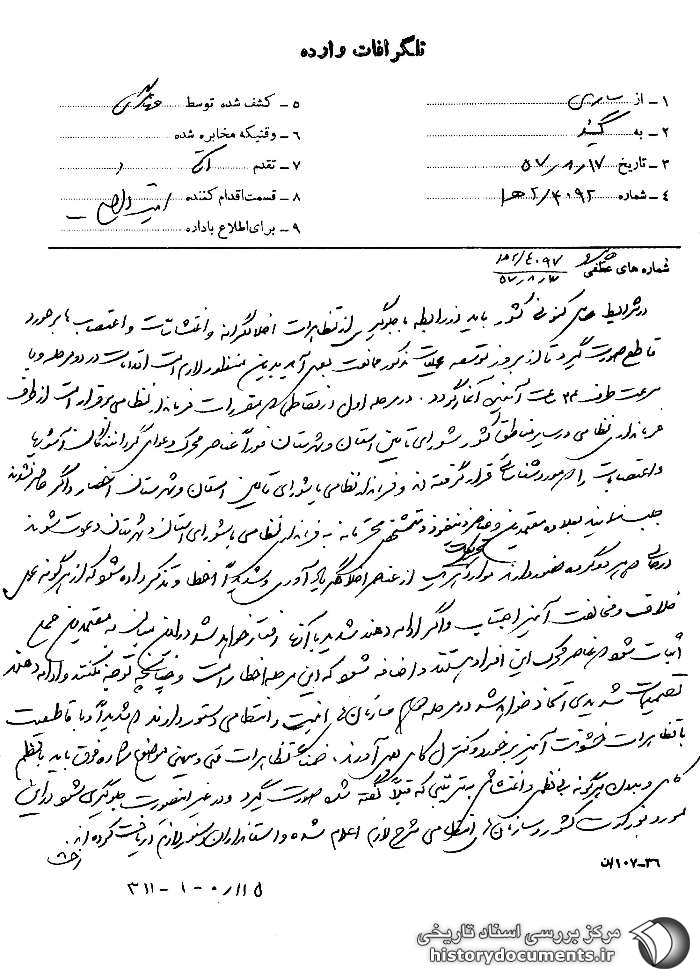 تلگرافات وارده
۱ـ از ساری
۲ـ به گنبد
۳ـ تاریخ ۵۷/۸/۱۷
۴ـ شماره ۴۰۹۲/ﻫ۲
۵ـ کشف شده توسط
۶ـ وقتیکه مخابره شده
۷ـ تقدم آنی
۸ـ قسمت اقدام کننده امنیت داخلی
۹ـ برای اطلاع باداره
شماره های عطفی
در شرایط های کنونی کشور باید در رابطه با جلوگیری از تظاهرات اخلالگرانه و اغتشاشات و اعتصاب ها برخورد
قاطع صورت گیرد تا از بروز توسعه عملیات مذکور ممانعت بعمل آید بدین منظور لازم است اقدامات در دو مرحله و با
سرعت ظرف ۲۴ ساعت آینده آغاز گردد. در مرحله اول در نقاطی که مقررات فرماندار نظامی برقرار است از طرف
فرمانداری نظامی و در سایر مناطق کشور شورای تامین استان و شهرستان فوراً عناصر محرک و عوامل گردانندگان آشوبها
و اعتصابات را که مورد شناسائی قرار گرفته اند و فرماندار نظامی یا شورای تامین استان و شهرستان احضار و اگر حاضر نشوند
جلب نمایند بعلاوه معتمدین و عناصر ذینفوذ و متشخص محترمانه به فرمانداری نظامی یا شورای استان و شهرستان دعوت شوند
در حالی که هر دو گروه حضور دارند موارد از عناصر اخلالگر یادآوری و شدیداً اخطار و تذکر داده شود که از هر گونه عمل
خلاف و مخالفت آمیز اجتناب و اگر ادامه دهند شدیداً با آنها رفتار خواهد شد در این میان به معتمدین جمع
اثبات شود که عناصر محرک این افراد هستند و اضافه شود که این مرحله اخطار است و چنانچه توجه نکنند و ادامه دهند
تصمیمات شدیدی اتخاذ خواهد شد در مرحله دوم سازمانهای امنیت و انتظامی دستور دارند که شدیداً و با قاطعیت
با تظاهرات خشونت آمیز برخورد و کنترل کامل بعمل آورند. ضمناً تظاهرات ملی و میهنی موضع شماره فوق باید با نظم
کامل و بدون هرگونه بی نظمی و اغتشاش به ترتیبی که قبلاً گفته شده صورت گیرد و در غیر اینصورت جلوگیری شود در این
مورد به وزارت کشور و سازمانهای انتظامی شرح لازم اعلام شده و استانداران دستور لازم دریافت کرده اند.
۳۶-۱۰۷/ن
۳۱۱-۱-۰/۱۱۵
مرکز بررسی اسناد تاریخی
historydocuments.ir